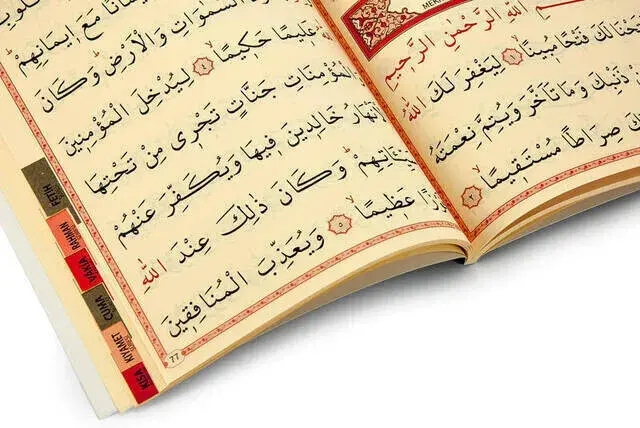 اللّٰهِ الرَّحْمٰنِ الرَّحِيمِ
حْنَا لَكَ فَتْحًا مُبِينًا ﴿١﴾ لِيَغْفِرَ لَكَ اللّٰهُ
ذَنْبِكَ وَمَا تَاَخَّرَ وَيُتِمَّ نِعْمَتَهُ
كَ صِرَاطًا مُسْتَقِيمًا ﴿٢﴾
مَانًا مَعَ اِيمَانِهِمْ
السَّمٰوَاتِ وَالْاَرْضِ وَكَانَ
عَلِيمًا حَكِيمًا ﴿٤﴾ لِيُدْخِلَ الْمُؤْمِنِينَ
الْمُؤْمِنَاتِ جَنَّاتٍ تَجْرِى مِنْ تَحْتِهَا
نْهَارُ خَالِدِينَ فِيهَا وَيُكَفِّرَ عَنْهُمْ
ئَاتِهِمْ وَكَانَ ذٰلِكَ عِنْدَ اللّٰهِ
زًا عَظِيمًا ﴿٥﴾ وَيُعَذِّبَ الْمُنَافِقِينَ
77
FETİH
RAHMAN
VAKIA
CUMA
KIYAMET
KISA